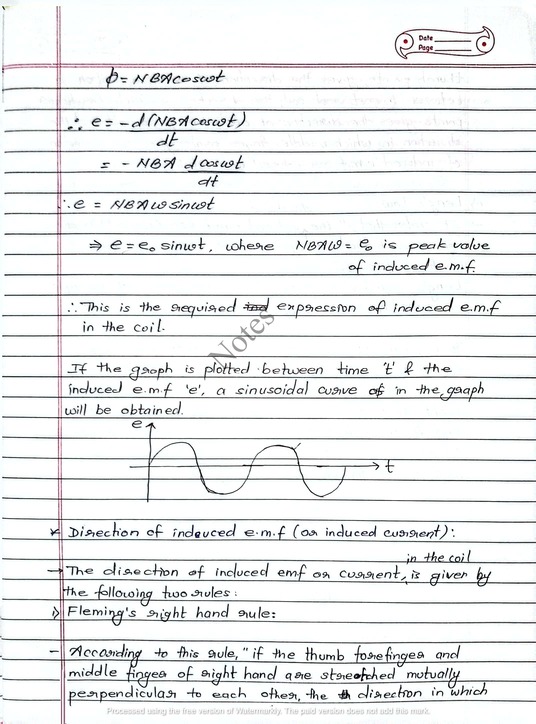 Date
Page
ϕ = NBAcosωt
∴ e = -d(NBAcosωt)
dt
= - NBA d cosωt
dt
∴ e = NBAω sinωt
⇒ e = e₀ sinωt, where NBAω = e₀ is peak value
of induced e.m.f.
∴ This is the required expression of induced e.m.f
in the coil.
Notes
If the graph is plotted between time 't' & the
induced e.m.f 'e', a sinusoidal curve in the graph
will be obtained.
e
t
* Direction of induced e.m.f (or induced current):
in the coil
→ The direction of induced emf or current, is given by
the following two rules:
i) Fleming's right hand rule:
- According to this rule, "if the thumb forefinger and
middle finger of right hand are stretched mutually
perpendicular to each other, the direction in which
Processed using the free version of Watermarkly. The paid version does not add this mark.